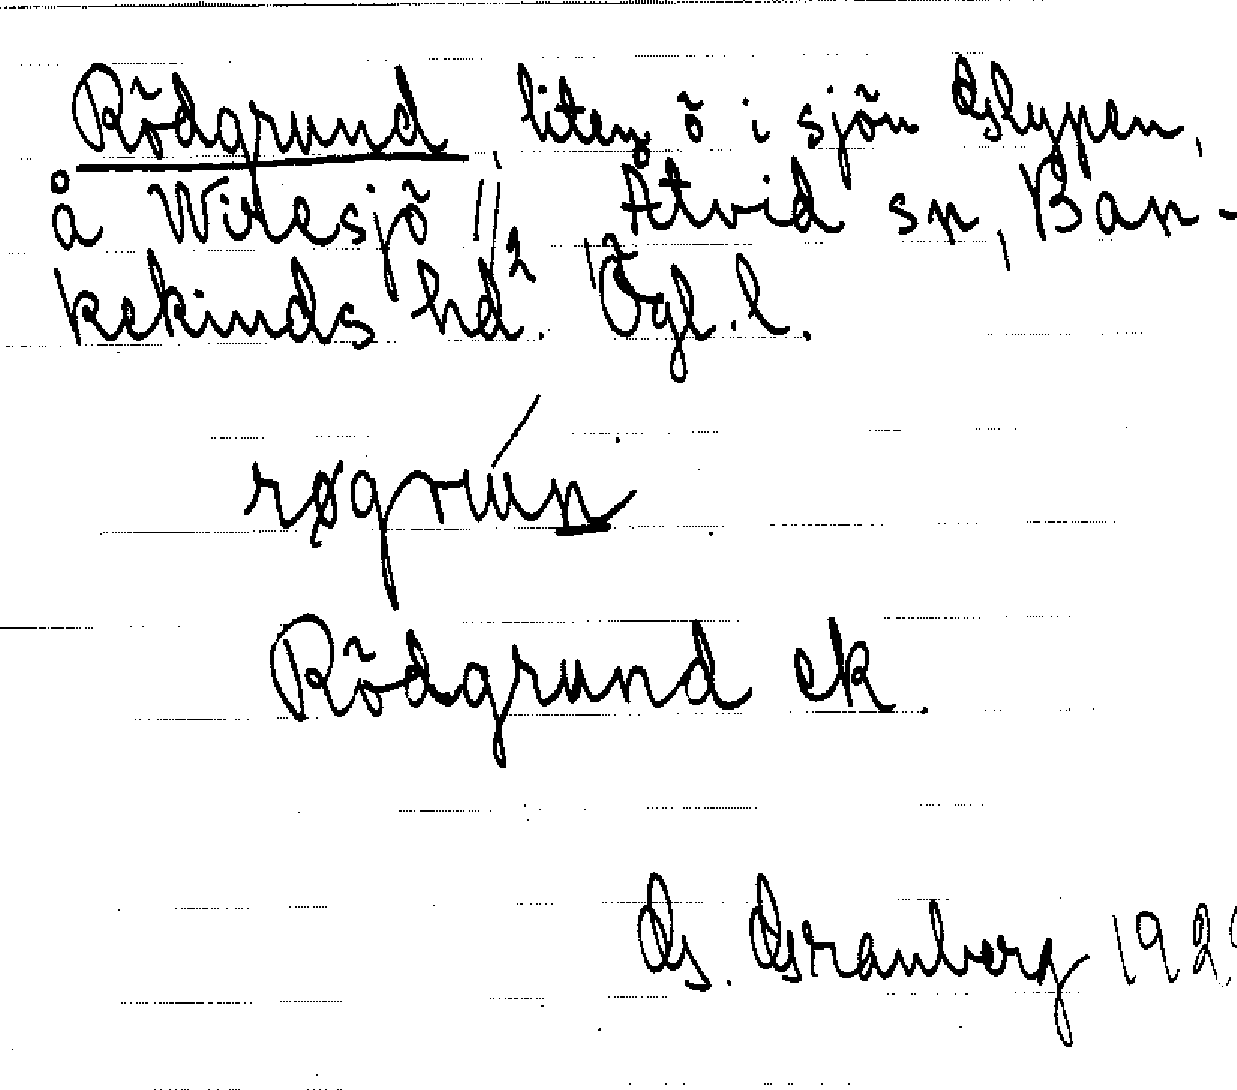 Rödgrund, liten ö i sjön Glypen,
å Wirksjö 1/2, Åtvid sn, Ban-
kekinds hd. Ögl. l.
Rödgrund ek.
G. Granberg 192